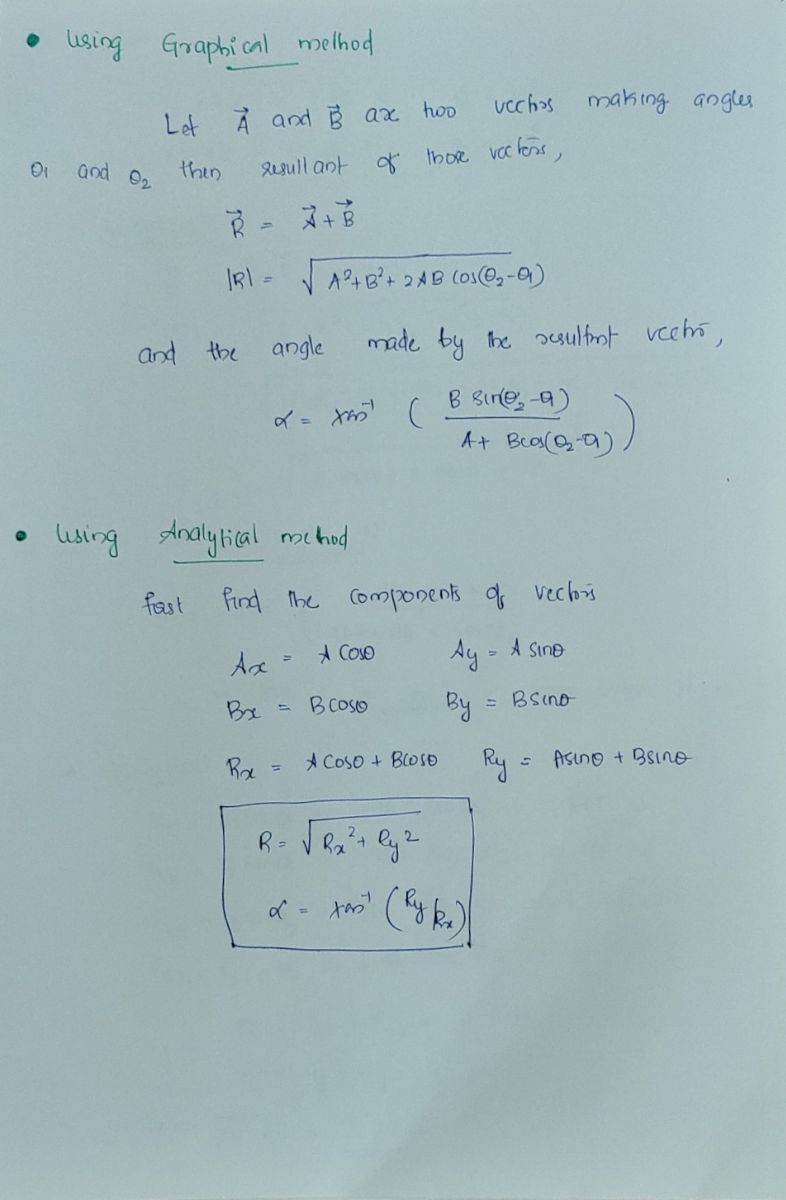 • Using Graphical method
Let A⃗ and B⃗ are two vectors making angles
θ1 and θ2 then resultant of those vectors,
R⃗ = A⃗ + B⃗
|R| = √(A² + B² + 2AB cos(θ2 - θ1))
and the angle made by the resultant vector,
α = tan⁻¹ ( B sin(θ2 - θ1) / A + B cos(θ2 - θ1) )
• Using Analytical method
first find the components of vectors
Ax = A cosθ Ay = A sinθ
Bx = B cosθ By = B sinθ
Rx = A cosθ + B cosθ Ry = A sinθ + B sinθ
R = √(Rx² + Ry²)
α = tan⁻¹ (Ry/Rx)